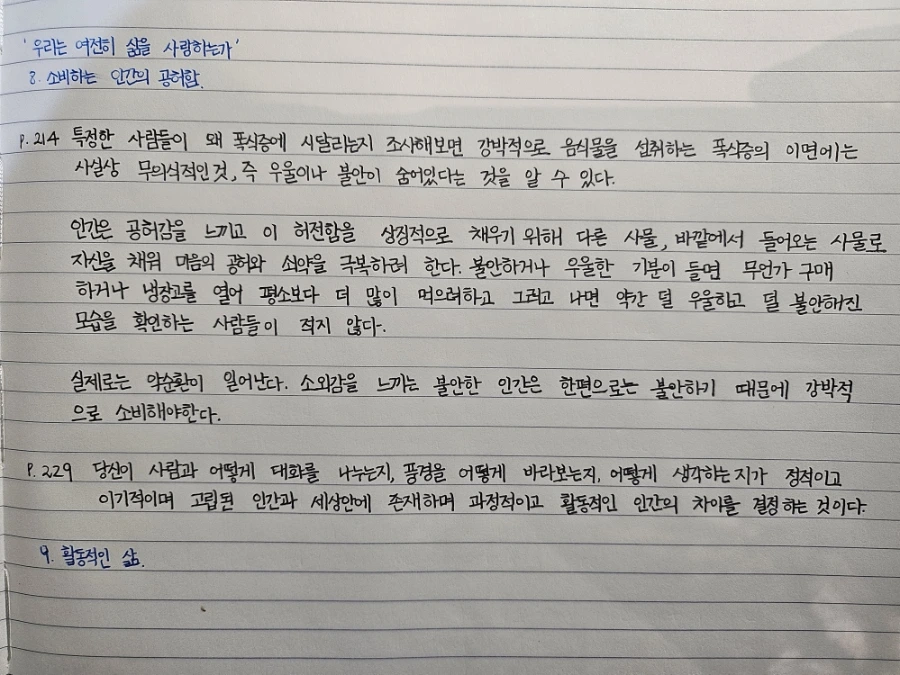 '우리는 여전히 삶을 사랑하는가'
8. 소비하는 인간의 공허함.
P. 214 특정한 사람들이 왜 폭식증에 시달리는지 조사해보면 강박적으로 음식물을 섭취하는 폭식증의 이면에는
사실상 무의식적인 것, 즉 우울이나 불안이 숨어있다는 것을 알 수 있다.
인간은 공허감을 느끼고 이 허전함을 상징적으로 채우기 위해 다른 사물, 바깥에서 들어오는 사물로
자신을 채워 마음의 공허와 쇠약을 극복하려 한다. 불안하거나 우울한 기분이 들면 무언가 구매
하거나 냉장고를 열어 평소보다 더 많이 먹으려하고 그러고 나면 약간 덜 우울하고 덜 불안해진
모습을 확인하는 사람들이 적지 않다.
실제로는 악순환이 일어난다. 소외감을 느끼는 불안한 인간은 한편으로는 불안하기 때문에 강박적
으로 소비해야한다.
P. 229 당신이 사람과 어떻게 대화를 나누는지, 풍경을 어떻게 바라보는지, 어떻게 생각하는지가 정적이고
이기적이며 고립된 인간과 세상안에 존재하며 과정적이고 활동적인 인간의 차이를 결정하는 것이다.
9. 활동적인 삶.